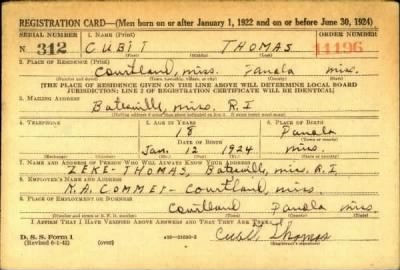 REGISTRATION CARD—(Men born on or after January 1, 1922 and on or before June 30, 1924)
SERIAL NUMBER 1. NAME (Print) ORDER NUMBER
N 312 CUBIT THOMAS 11196
(First) (Middle) (Last)
2. PLACE OF RESIDENCE (Print)
Courtland, miss. Panola miss.
(Number and street) (Town, township, village, or city) (County) (State)
[THE PLACE OF RESIDENCE GIVEN ON THE LINE ABOVE WILL DETERMINE LOCAL BOARD
JURISDICTION; LINE 2 OF REGISTRATION CERTIFICATE WILL BE IDENTICAL]
3. MAILING ADDRESS
Batesville, miss. R.I
4. TELEPHONE 5. AGE IN YEARS 6. PLACE OF BIRTH
18 Panola
DATE OF BIRTH
Jan. 12 1924 miss.
7. NAME AND ADDRESS OF PERSON WHO WILL ALWAYS KNOW YOUR ADDRESS
ZEKE-THOMAS, Batesville, miss. R.I.
8. EMPLOYER'S NAME AND ADDRESS
R.A. COMMET- Courtland, miss.
9. PLACE OF EMPLOYMENT OR BUSINESS
Courtland Panola miss.
(Number and street or R. F. D. number) (Town) (County) (State)
I AFFIRM THAT I HAVE VERIFIED ABOVE ANSWERS AND THAT THEY ARE TRUE.
D. S. S. Form 1 Cubit Thomas
(Revised 6-1-42) (over) (Registrant's signature)